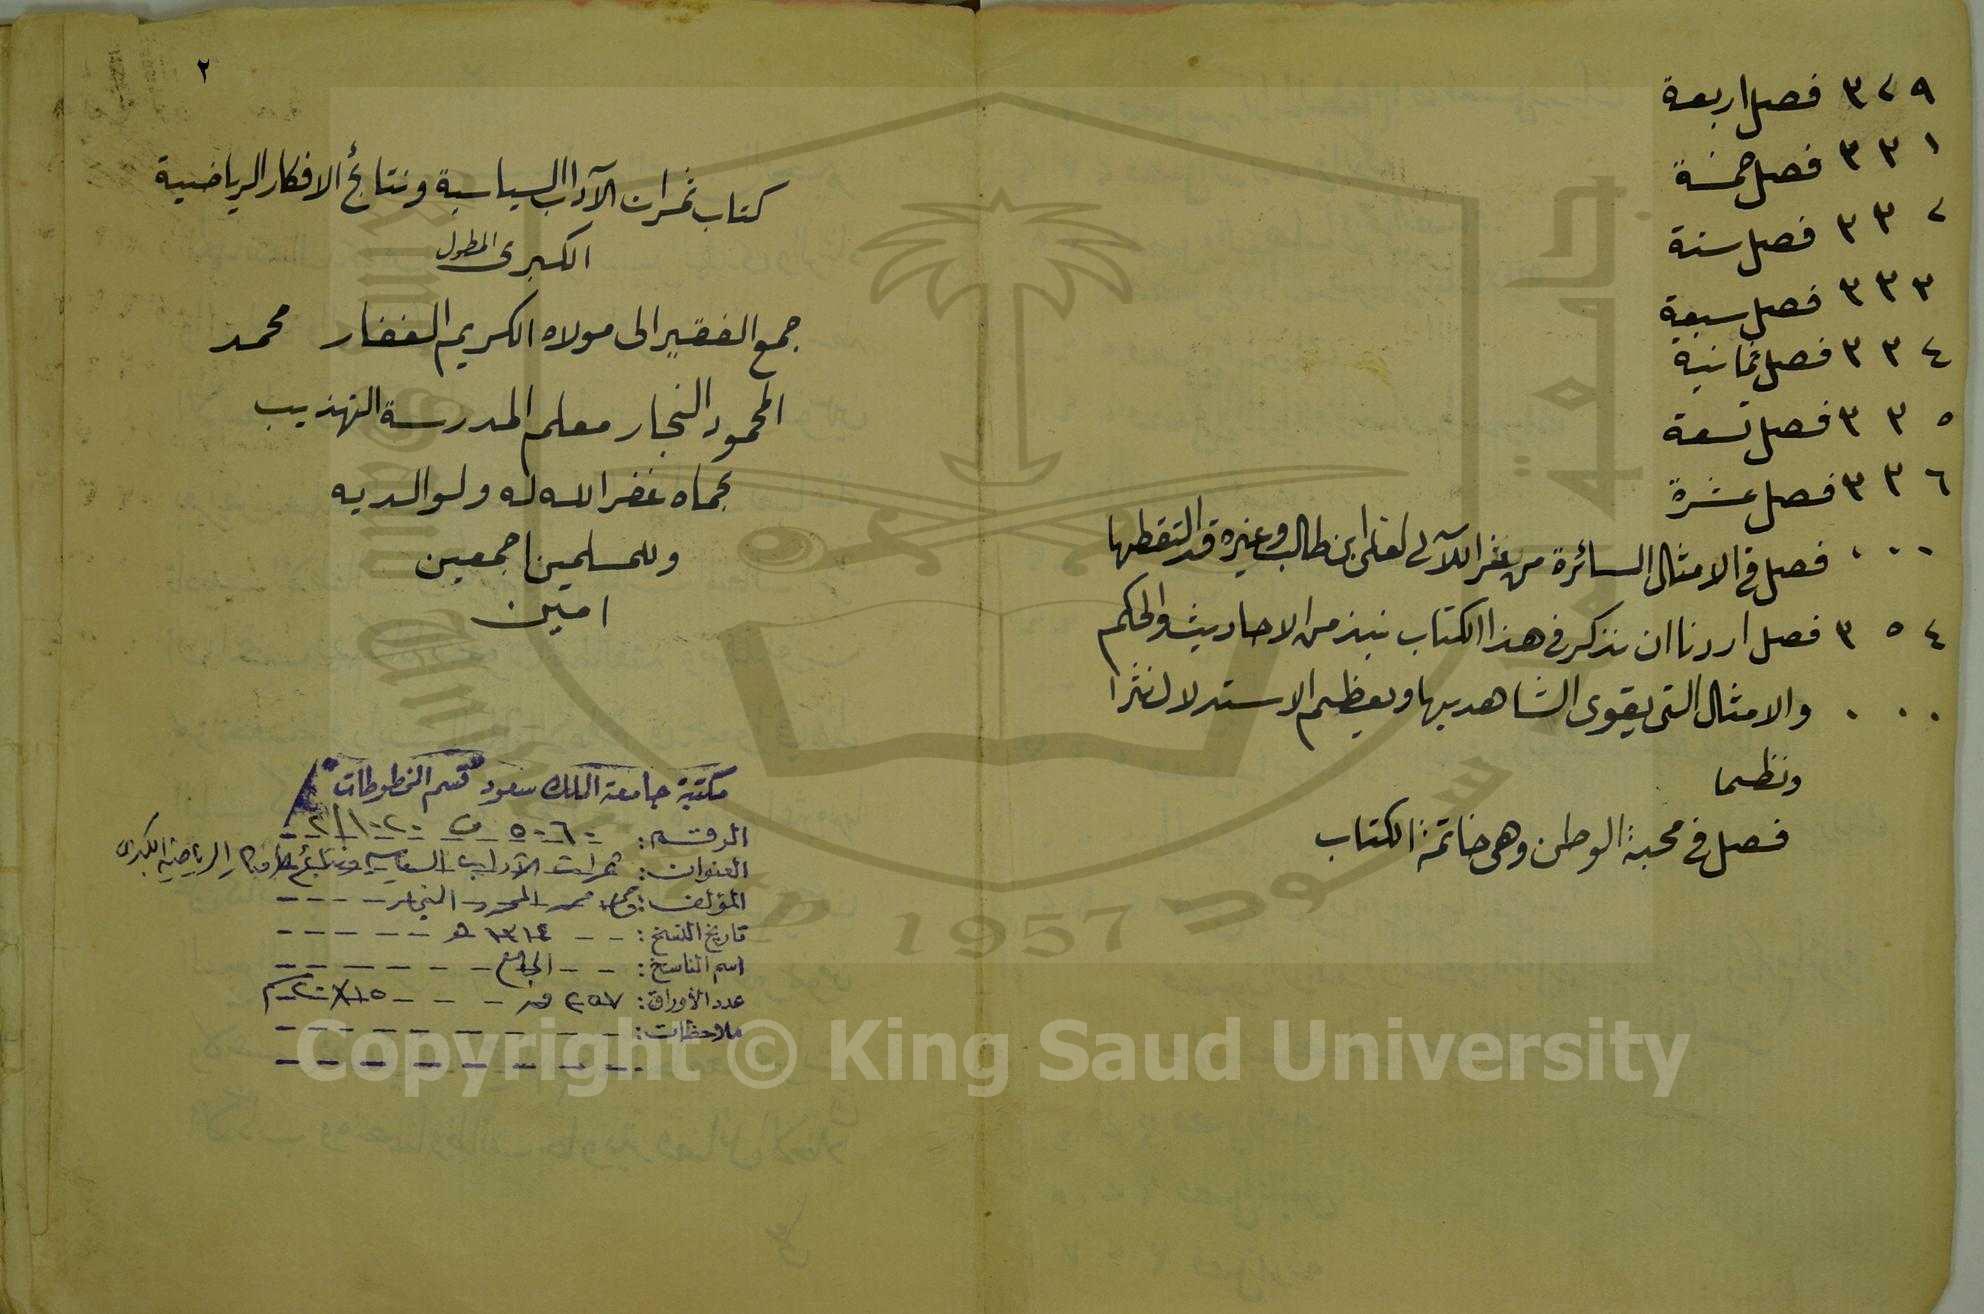 ٣٢٩ فصل اربعة
٣٣١ فصل خمسة
٣٣٢ فصل ستة
٣٣٣ فصل سبعة
٣٣٤ فصل ثمانية
٣٣٥ فصل تسعة
٣٣٦ فصل عشرة
٠٠٠ فصل في الامثال السائرة من اللآلى ابن طالب وغيره قد التقطها
٣٥٤ فصل اردنا ان نذكر في هذا الكتاب نبذ من الاحاديث والحكم
٠٠٠ والامثال التى يقوى الشاهد بها ويعظم الاستدلال نثرا
ونظما
فصل في محبة الوطن وهى خاتمة الكتاب
٢
كتاب ثمرات الآداب السياسية ونتائج الافكار الرياضية
الكبرى المطول
جمع الفقير الى مولاه الكريم الغفار محمد
المحمود النجار معلم المدرسة التهذيب
بحماه غفر الله له ولوالديه
وللمسلمين اجمعين
امين
مكتبة جامعة الملك سعود قسم المخطوطات
الرقم: ٥٠٦٠
العنوان: ثمرات الآداب السياسية ونتائج الأفكار الرياضية الكبرى
المؤلف: محمد المحمود النجار
تاريخ النسخ: ١٣١٤ هـ
اسم الناسخ: الجامع
عدد الأوراق: ٢٥٧ ١٥×٢٠ سم
ملاحظات:
جامعة الملك سعود
King Saud University
1957
Copyright © King Saud University